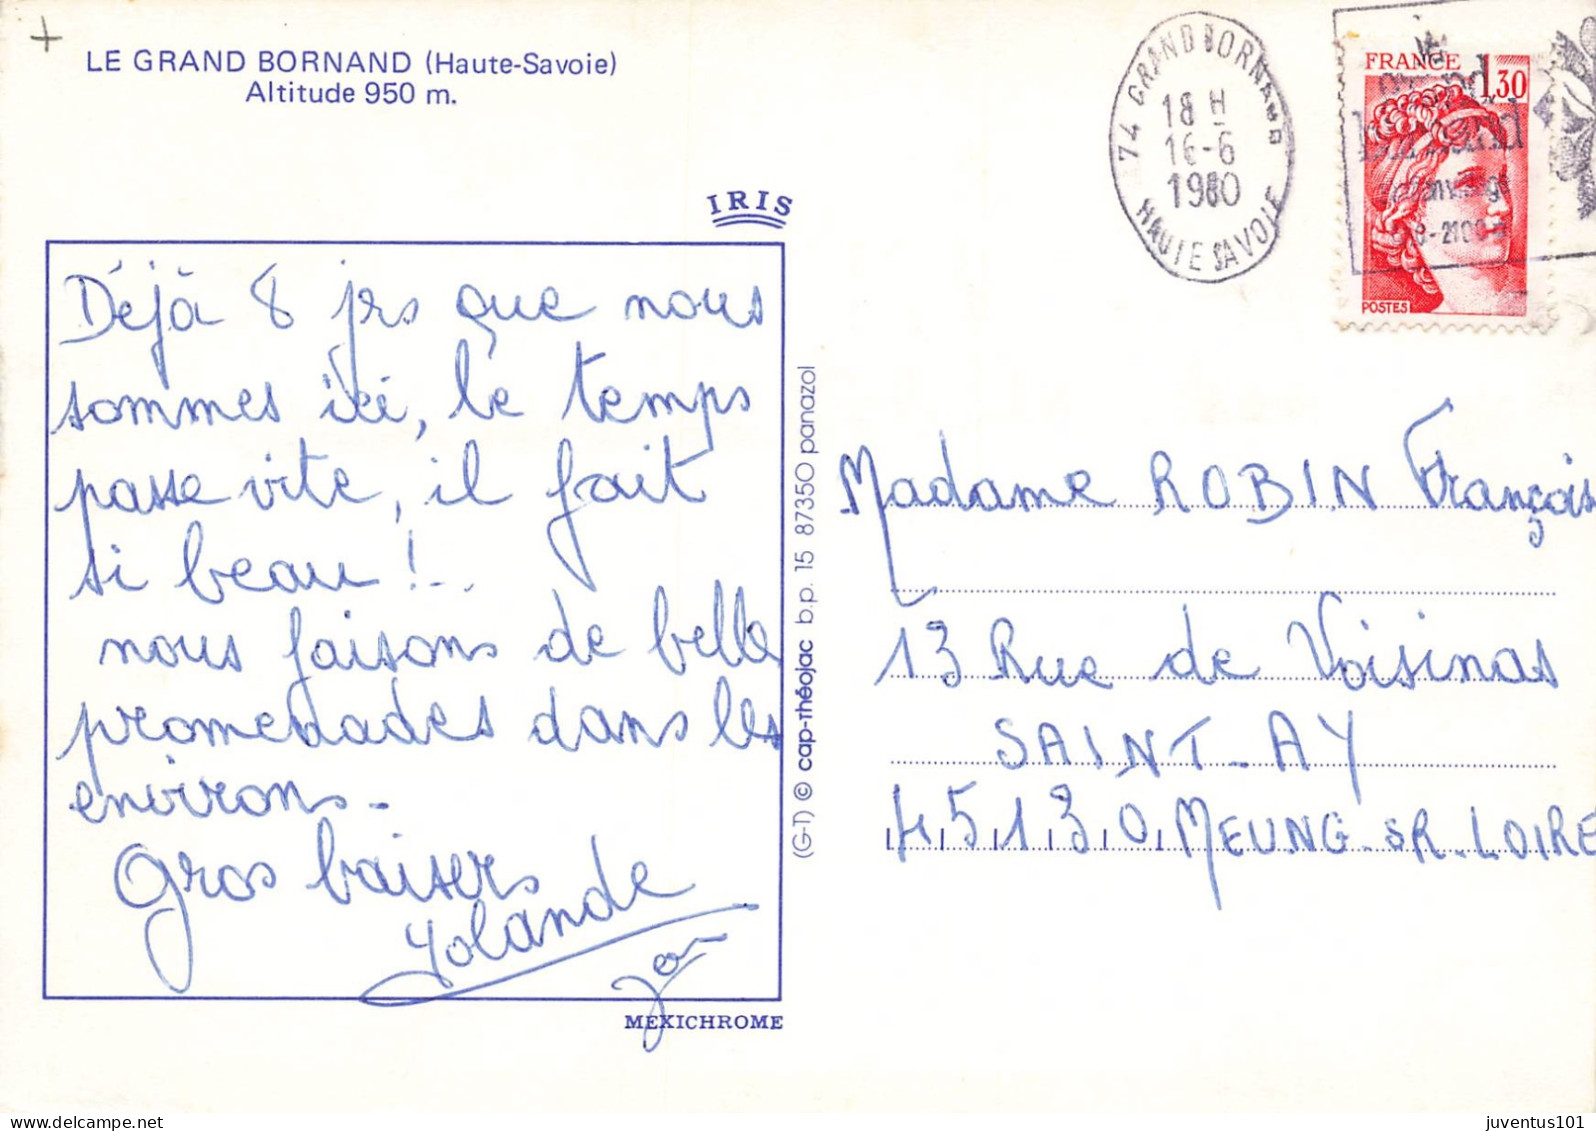 LE GRAND BORNAND (Haute-Savoie)
Altitude 950 m.
IRIS
Déjà 8 jrs que nous
sommes ici, le temps
passe vite, il fait
si beau !..
nous faisons de belle
promenades dans les
environs -
Gros baisers
Yolande
MEXICHROME
(G-T) © cap-théojac b.p. 15 87350 panazol
74 GRAND BORNAND
18 H
16-6
1980
HAUTE SAVOIE
FRANCE
1,30
POSTES
grand
bornand
Madame ROBIN François
13 Rue de Voisinas
SAINT-AY
45130 MEUNG-SR-LOIRE
juventus101